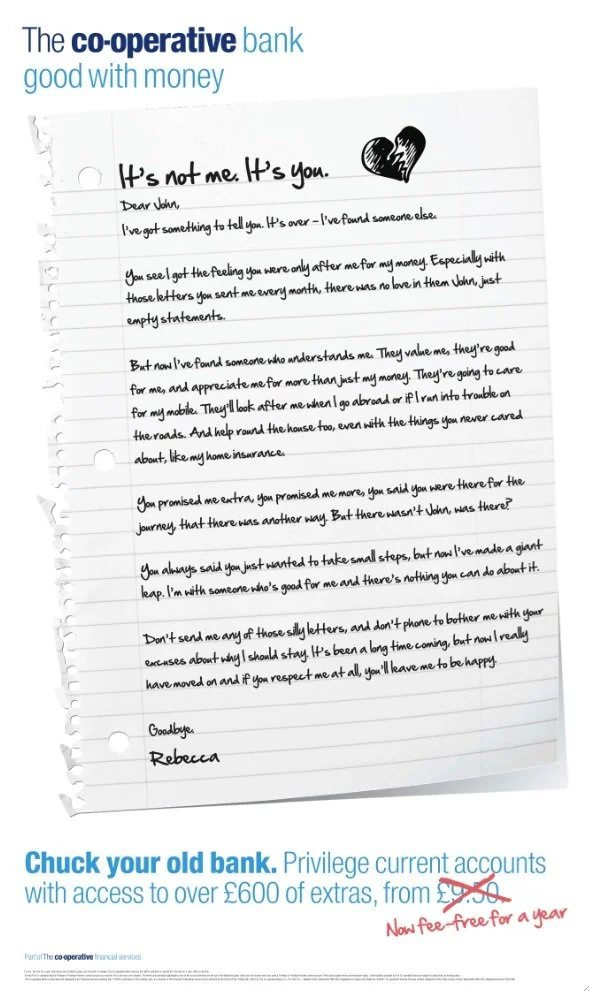 The co-operative bank
good with money
It's not me. It's you.
Dear John,
I've got something to tell you. It's over – I've found someone else.
You see I got the feeling you were only after me for my money. Especially with
those letters you sent me every month, there was no love in them John, just
empty statements.
But now I've found someone who understands me. They value me, they're good
for me, and appreciate me for more than just my money. They're going to care
for my mobile. They'll look after me when I go abroad or if I run into trouble on
the roads. And help round the house too, even with the things you never cared
about, like my home insurance.
You promised me extra, you promised me more, you said you were there for the
journey, that there was another way. But there wasn't John, was there?
You always said you just wanted to take small steps, but now I've made a giant
leap. I'm with someone who's good for me and there's nothing you can do about it.
Don't send me any of those silly letters, and don't phone to bother me with your
excuses about why I should stay. It's been a long time coming, but now I really
have moved on and if you respect me at all, you'll leave me to be happy.
Goodbye.
Rebecca
Chuck your old bank. Privilege current accounts
with access to over £600 of extras, from £9.50.
Now fee-free for a year
Part of The co-operative financial services